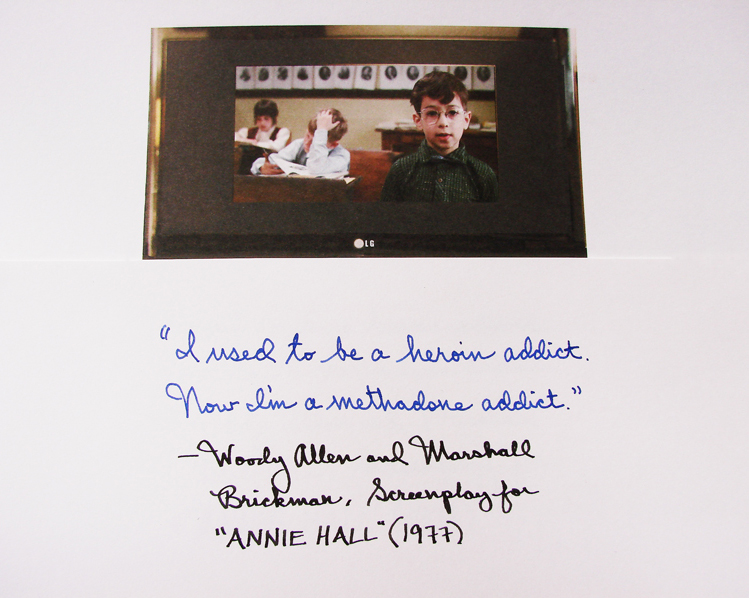 LG
"I used to be a heroin addict.
Now I'm a methadone addict."
—Woody Allen and Marshall
Brickman, Screenplay for
"ANNIE HALL" (1977)